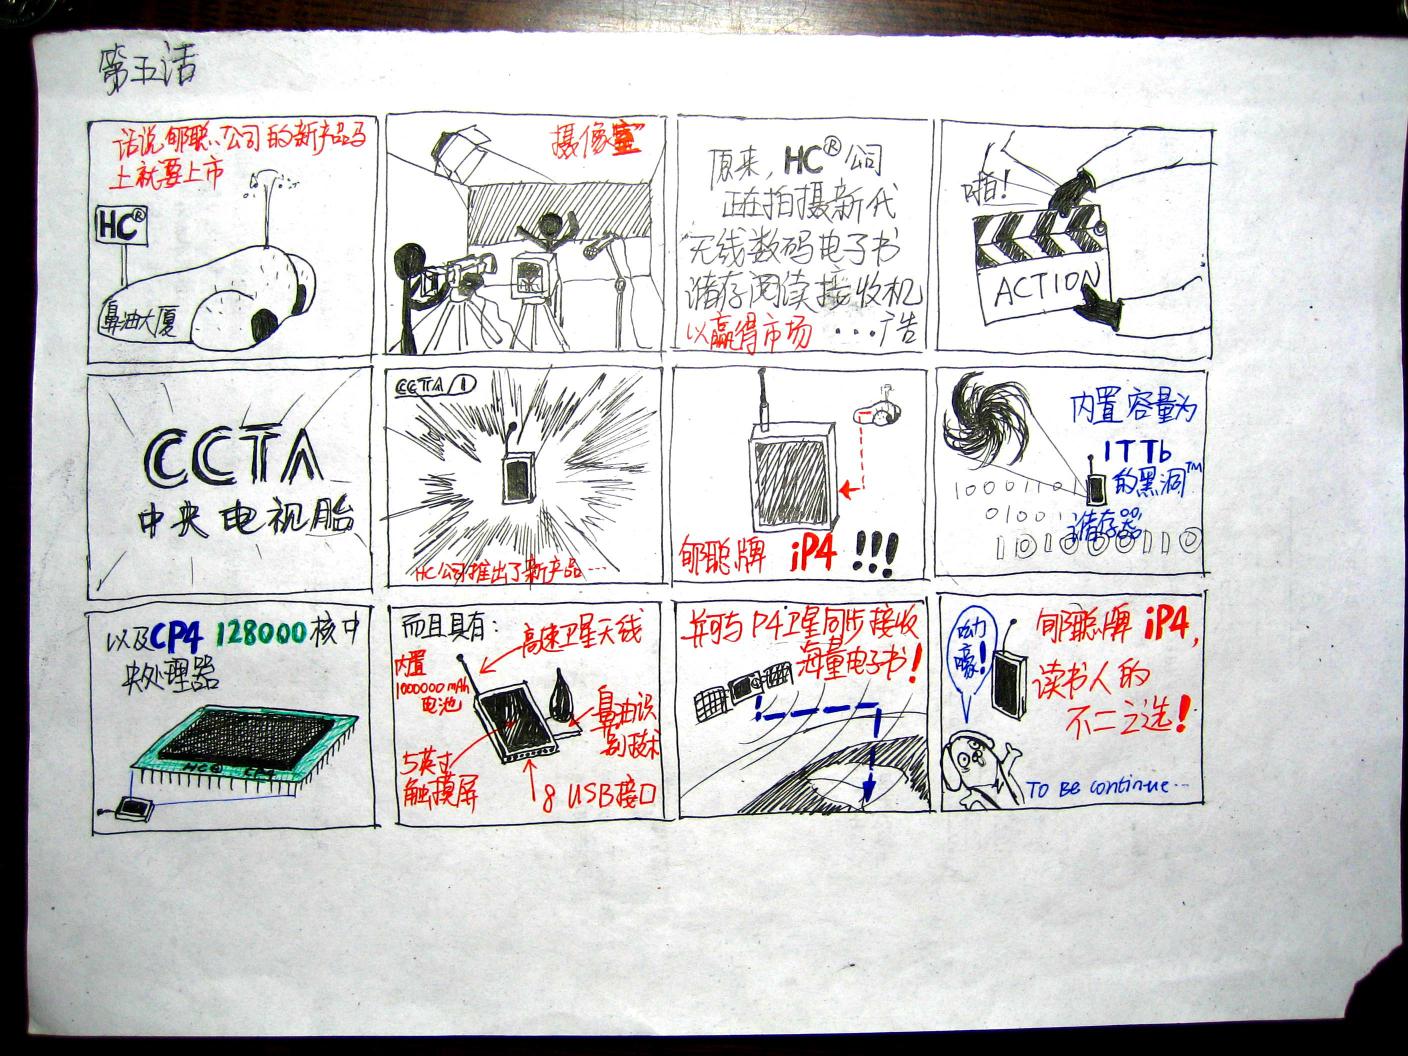 第五话
话说郇聪公司的新产品马
上就要上市
HC®
鼻油大厦
摄像室
原来，HC®公司
正在拍摄新一代
无线数码电子书
储存阅读接收机
以赢得市场 ...广告
啪！
ACTION
CCTA
中央电视胎
CCTA 1
HC公司推出了新产品...
郇聪牌 iP4 !!!
内置容量为
1TTb
的黑洞™
储存器
10001101
01001
1010000110
以及CP4 128000核中
央处理器
HC® CP4
而且具有：
高速卫星天线
内置
1000000mAh
电池
鼻油识
别技术
5英寸
触摸屏
8 USB接口
并可与P4卫星同步接收
海量电子书！
呦
嚎！
郇聪牌 iP4，
读书人的
不二之选！
TO BE continue...